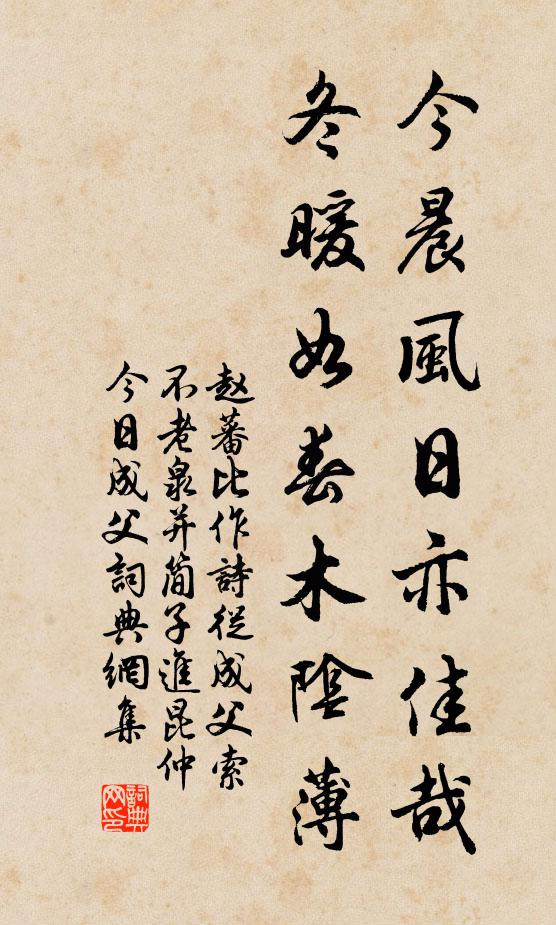 今晨風日亦佳哉
冬暖如春木陰薄
赵蕃比作詩從成父索
不老泉并简子進昆仲
今日成父詞典網集
詞典網印